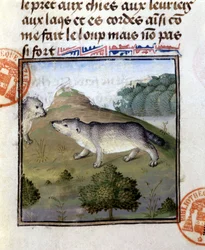 le pret aux chiẽs aux leuriers
aux lags et es cordes aĩsi cõ
me fait le loup mais nõ pas
si fort